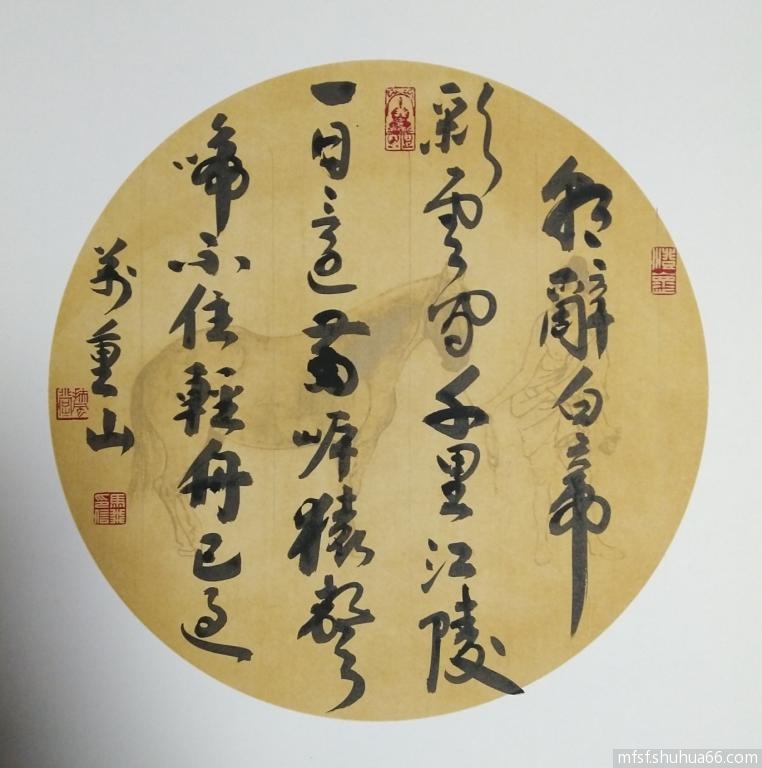 朝辭白帝
彩雲間千里江陵
一日還兩岸猿聲
啼不住輕舟已過
萬重山
mfsf.shuhua66.com